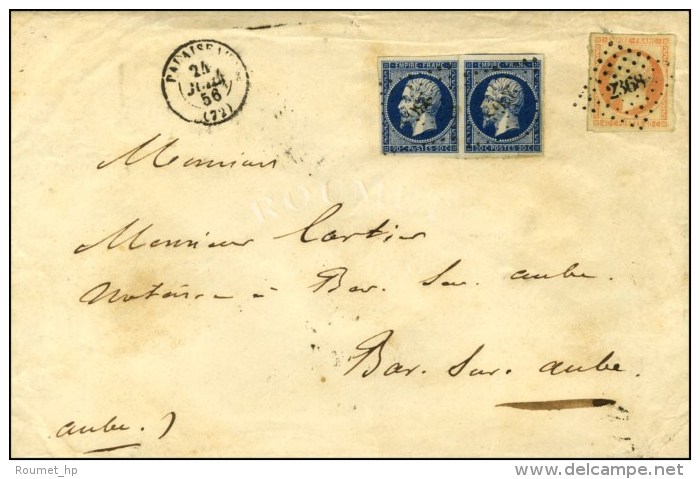 PALAISEAU
24
JUIL
56
(72)
EMPIRE FRANC
20 C POSTES 20 C
EMPIRE FRANC
20 C POSTES 20 C
2368
Monsieur
ROUMET
Monsieur Cartier
Notaire à Bar. Sur. aube.
Bar. Sur. aube.
aube.)
Roumet_hp
© delcampe.net